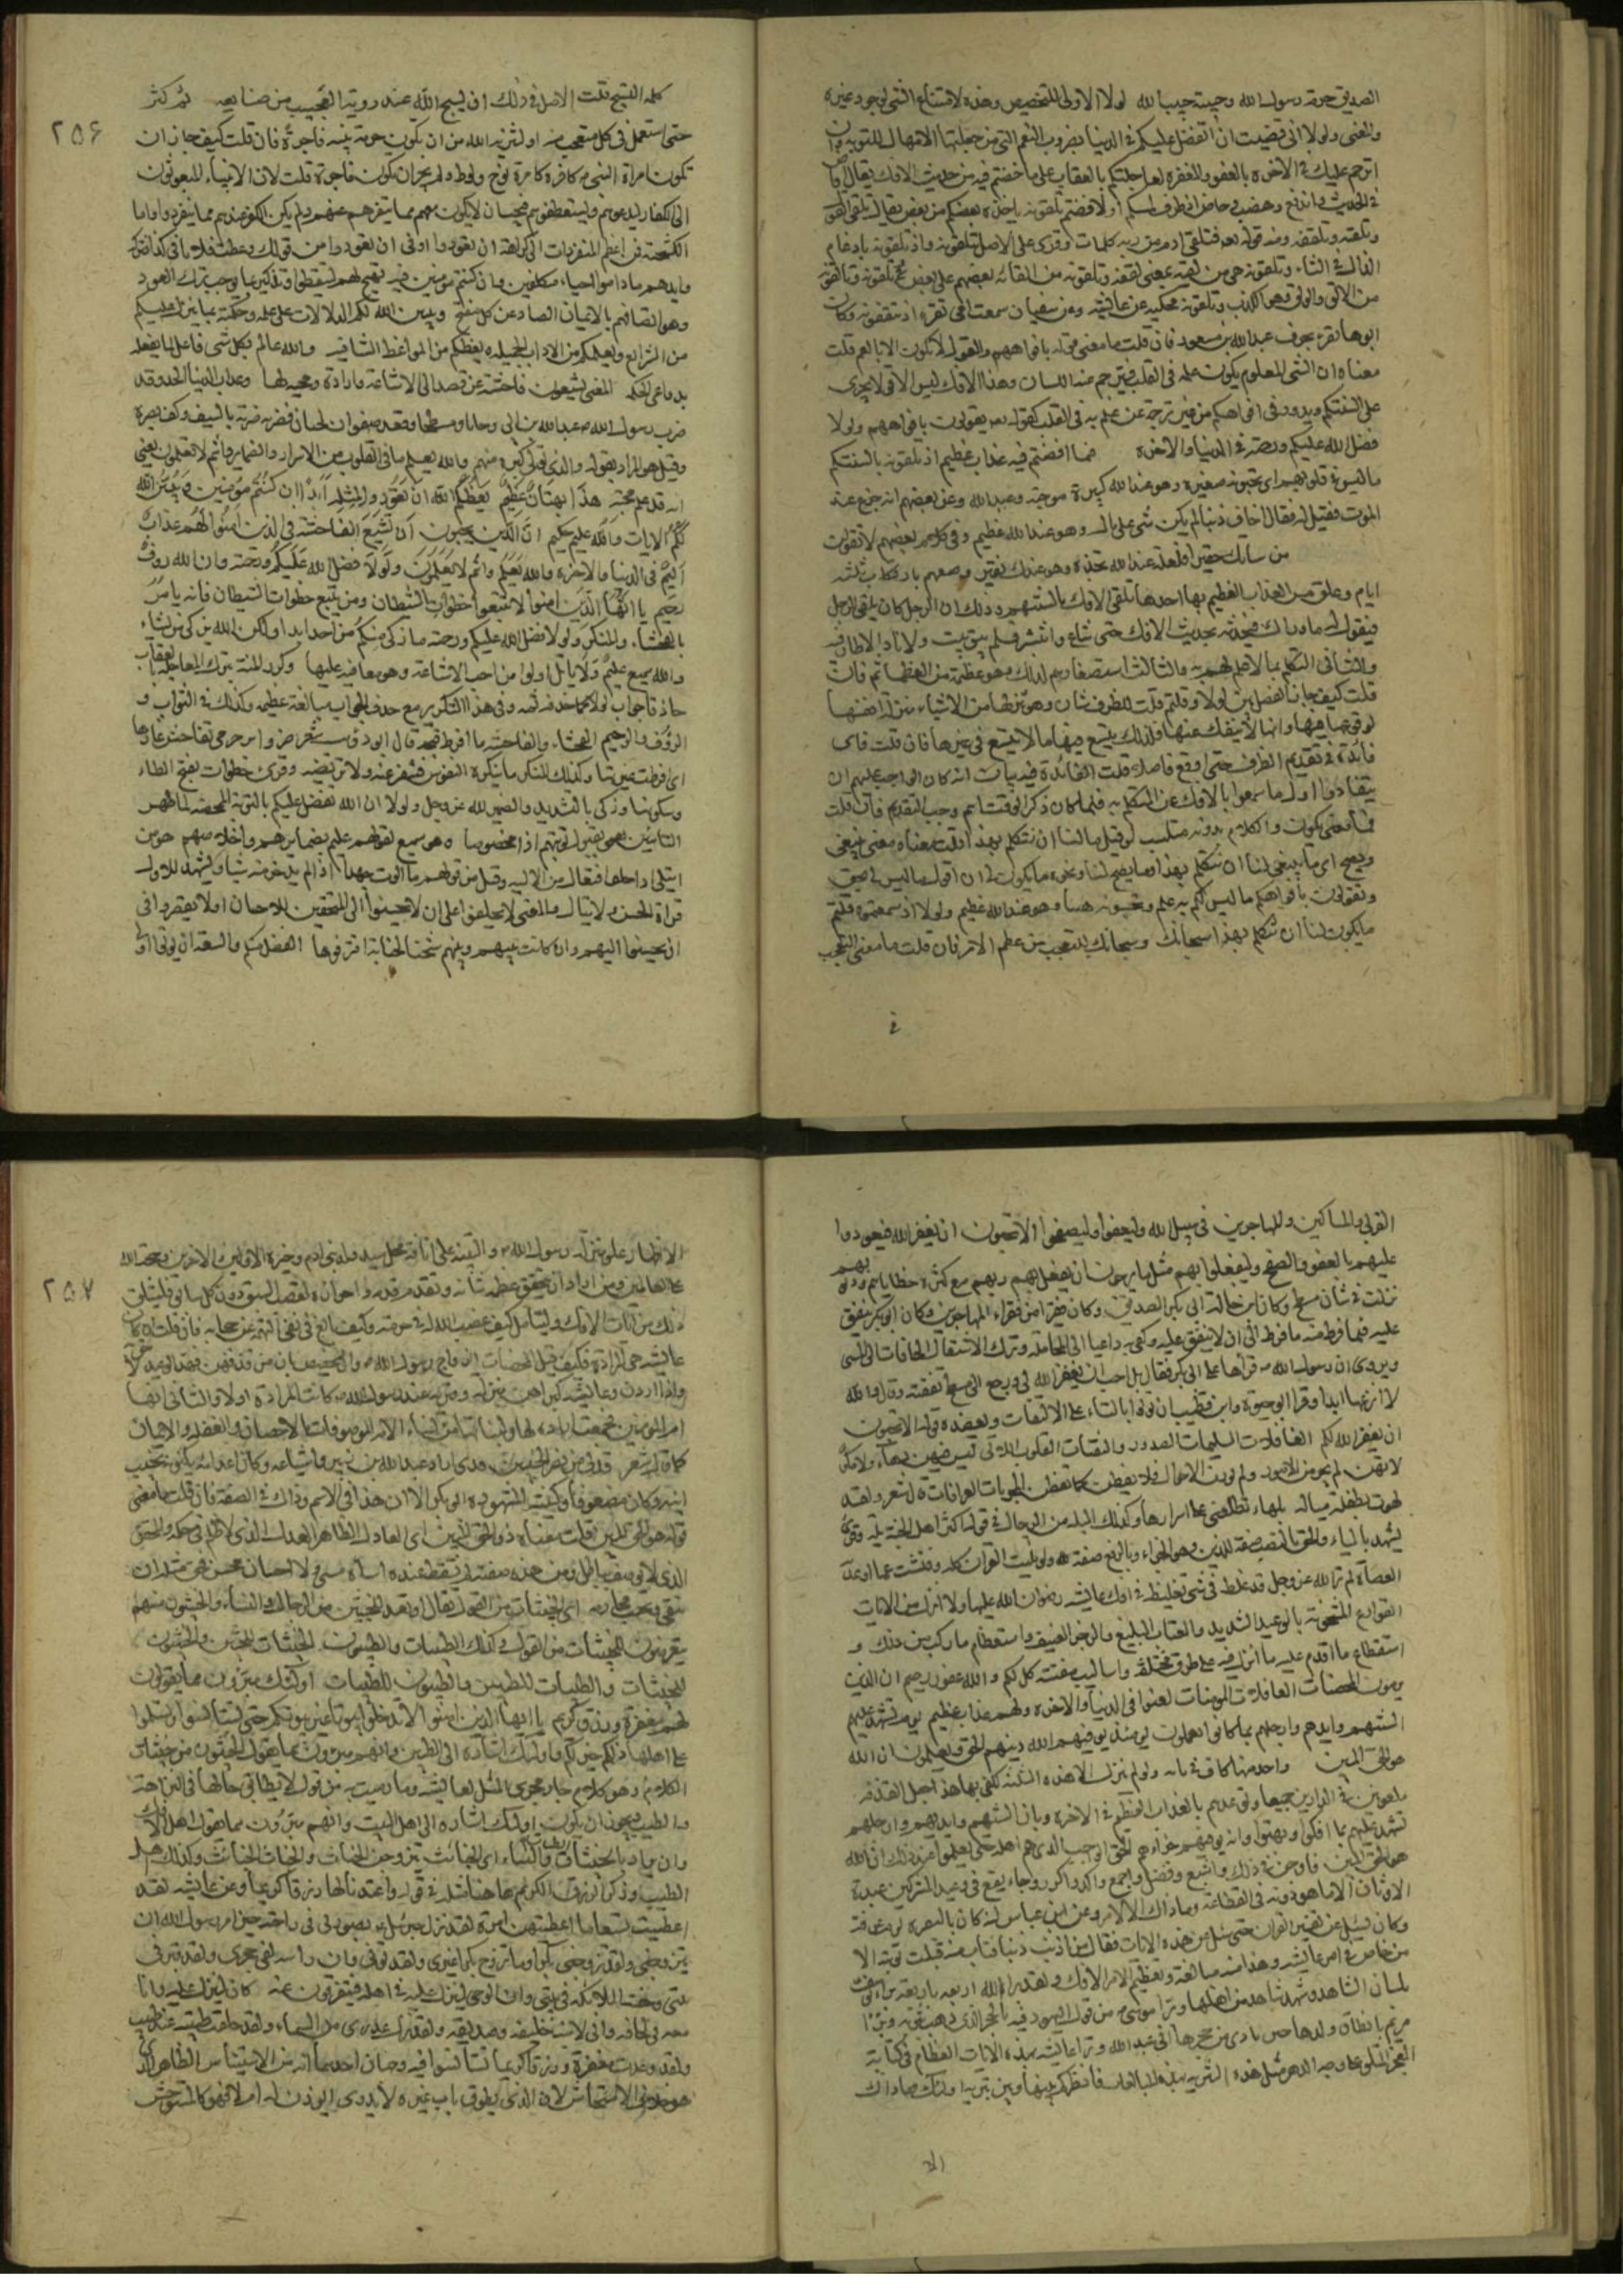 الصديق حرمة رسول الله وحبيبة حبيب الله لولا الاولى للتخصيص وهذه لامتناع الشي لوجود غيره
والمعنى ولولا انى قضيت ان اتفضل عليكم فى الدنيا بضروب النعم التى من جملتها الامهال للتوبة وان
اترحم عليكم فى الاخرة بالعفو والمغفرة لعاجلتكم بالعقاب على ما خضتم فيه من حديث الافك يقال افاض
فى الحديث واندفع وهضب وخاض اذ ظرف لمسكم او لافضتم تلقونه ياخذه بعضكم من بعض يقال تلقى القول
وتلقنه وتلقفه ومنه قوله تعه فتلقى ادم من ربه كلمات وقرئ على الاصل تتلقونه واذ تلقونه بادغام
الذال فى التاء وتلقونه من لقيه بمعنى لقفه وتلقونه من القائه بعضهم على بعض وتلقونه وتالقونه
من الالق والولق وهو الكذب وتلقونه محكيه عن عايشه وعن سفيان سمعت امى تقرء اذ تثقفونه وكان
ابوها يقرء بحرف عبد الله بن مسعود فان قلت ما معنى قوله بافواههم والقول لا يكون الا بالفم قلت
معناه ان الشى المعلوم يكون علمه فى القلب فيترجم عنه اللسان وهذا الافك ليس الا قولا يجرى
على السنتكم ويدور فى افواهكم من غير ترجمة عن علم به فى القلب كقوله تعه يقولون بافواههم ولولا
فضل الله عليكم ورحمته فى الدنيا والاخرة فيما افضتم فيه عذاب عظيم اذ تلقونه بالسنتكم
ما ليس فى قلوبهم اى تحسبونه صغيرة وهو عند الله كبيرة موجبة وعبد الله وعن بعضهم انه جزع عند
الموت فقيل له فقال اخاف ذنبا لم يكن منى على بال وهو عند الله عظيم وفى كلام بعضهم لا تقولن
من سياتك حقير فلعله عند الله نخله وهو عندك نقير وصفهم بارتكاب ثلثه
اثام وعلق مس العذاب العظيم بها احدها تلقى الافك بالسنتهم وذلك ان الرجل كان يلقى الرجل
فيقول له ما وراك فيحدثه بحديث الافك حتى شاع وانتشر فلم يبق بيت ولا ناد الا طار فيه
والثانى التكلم بما لا علم لهم به والثالث استصغارهم لذلك وهو عظيمة من العظائم فان
قلت كيف جاز الفصل بين لولا وقلتم قلت للظروف شان وهو تنزلها من الاشياء منزلة انفسها
لوقوعها فيها وانها لا ينفك عنها فلذلك يتسع فيها ما لا يتسع فى غيرها فان قلت فاى
فائدة فى تقديم الظرف حتى اوقع فاصلا قلت الفائدة فيه بيان انه كان الواجب عليهم ان
يتفادوا اول ما سمعوا بالافك عن التكلم به فلما كان ذكر الوقت اهم وجب التقديم فان قلت
فما معنى يكون والكلام بدونه متلئب لو قيل ما لنا ان نتكلم بهذا قلت معناه معنى ينبغى
ويصح اى ما ينبغى لنا ان نتكلم بهذا وما يصح لنا ونحوه ما يكون لى ان اقول ما ليس لى بحق
وتقولون بافواهكم ما ليس لكم به علم وتحسبونه هينا وهو عند الله عظيم ولولا اذ سمعتموه قلتم
ما يكون لنا ان نتكلم بهذا سبحانك وسبحانك للتعجب من عظم الامر فان قلت ما معنى التعجب
فى
٢٥٦
كلمة التسبيح قلت الاصل فى ذلك ان يسبح الله عند روية العجيب من صنايعه ثم كثر
حتى استعمل فى كل متعجب منه او لتنزيه الله من ان يكون حرمة نبيه فاجرة فان قلت كيف جاز ان
تكون امراة النبى كافرة كامرة نوح ولوط ولم يجز ان تكون فاجرة قلت لان الانبياء مبعوثون
الى الكفار ليدعوهم ويستعطفوهم فيجب ان لا يكون معهم مما ينفرهم عنهم ولم يكن الكفر عندهم مما ينفر واما
الكشحنة فمن اعظم المنفرات اى كراهة ان تعودوا او فى ان تعودوا من قولك وعظت فلانا فى كذا فتركه
وابدهم ما داموا احياء مكلفين وان كنتم مومنين فيه تهييج لهم ليتعظوا وتذكير بما يوجب ترك العود
وهو اتصافهم بالايمان الصاد عن كل مقبح ويبين الله لكم الدلالات على علمه وحكمته بما ينزل عليكم
من الشرايع ويعلمكم من الاداب الجميلة ويعظكم من المواعظ الشافيه والله عالم بكل شى فاعل لما يفعله
بدواعى الحكمه المعنى يشيعون فاحشة عن قصد الى الاشاعة وارادة ومحبة لها وعذاب الدنيا الحد وقد
ضرب رسول الله صه عبد الله بن ابى وحسانا ومسطحا وقعد صفوان لحسان فضربه ضربة بالسيف وكف بصره
وقيل هو المراد بقوله والذى تولى كبره منهم والله يعلم ما فى القلوب من الاسرار والضماير وانتم لا تعلمون يعنى
انه قد علم محبة هذا بهتان عظيم يعظكم الله ان تعودوا لمثله ابدا ان كنتم مومنين ويبين الله
لكم الايات والله عليم حكيم ان الذين يحبون ان تشيع الفاحشة فى الذين امنوا لهم عذاب
اليم فى الدنيا والاخرة والله يعلم وانتم لا يعلمون ولولا فضل الله عليكم ورحمته وان الله روف
رحيم يا ايها الذين امنوا لا تتبعوا خطوات الشيطان ومن يتبع خطوات الشيطان فانه يامر
بالفحشاء والمنكر ولولا فضل الله عليكم ورحمته ما زكى منكم من احد ابدا ولكن الله يزكى من يشاء
والله سميع عليم ولا ياتل اولوا من احب الاشاعة وهو معاقبه عليها وكرر المنة بترك المعاجلة بالعقاب
حاذفا جواب لولا كما حذفه ثمه وفى هذا التكرير مع حذف الجواب مبالغة عظيمه وكذلك فى التواب و
الروف والرحيم الفحشاء والفاحشة ما افرط قبحه قال ابو ذويب ضرائر حرمى تفاحش غارها
اى افرطت غيرتها وكذلك المنكر ما تنكره النفوس فتنفر عنه ولا ترتضيه وقرئ خطوات بفتح الطاء
وسكونها وزكى بالتشديد والضمير لله عز وجل ولولا ان الله تفضل عليكم بالتوبة الممحصة لما طهر
التائبين بقبول توبتهم اذا محضوها وهو سميع لقولهم عليم بضمايرهم واخلاصهم هو من
ايتلى اذا حلف افتعال من الالية وقيل من قولهم ما الوت جهدا اذا لم يدخر منه شيا ويشهد للاول
قراة الحسن ولا يتال والمعنى لا يحلفوا على ان لا يحسنوا الى المستحقين للاحسان او لا يقصروا فى
ان يحسنوا اليهم وان كانت بينهم وبينهم شحنا لجناية اقترفوها الفضل منكم والسعة ان يوتوا اولى
القربى والمساكين والمهاجرين فى سبيل الله وليعفوا وليصفحوا الا تحبون ان يغفر الله فليعودوا
عليهم بالعفو والصفح وليفعلوا بهم مثل ما يرجون ان يفعل بهم ربهم مع كثرة خطاياهم وذنوبهم
نزلت فى شان مسطح وكان ابن خالة ابى بكر الصديق وكان فقيرا من فقراء المهاجرين وكان ابو بكر ينفق
عليه فلما فرط منه ما فرط الى ان لا ينفق عليه وكفى به داعيا الى المجاملة وترك الاشتغال بالمكافات للمسى
ويروى ان رسول الله صه قراها على ابى بكر فقال بلى احب ان يغفر الله لى ورجع الى مسطح نفقته وقال والله
لا انزعها ابدا وقرا ابو حيوة وابن قطيب ان توتوا بالتاء على الالتفات ويعضده قوله الا تحبون
ان يغفر الله لكم الغافلات السليمات الصدور والنقيات القلوب اللاتى ليس فيهن دهاء ولا مكر
لانهن لم يجربن الامور ولم يرزن الاحوال فلا يفطن لما تفطن المجربات العرافات قال شعر ولقد
لهوت بطفلة ميالة بلهاء تطلعنى على اسرارها وكذلك البله من الرجال فى قوله اكثر اهل الجنة بله وقرئ
يشهد بالياء والحق بالنصب صفة للدين وهو الجزاء وبالرفع صفة لله ولو فليت القران كله وفتشت عما اوعد به
العصاة لم تر الله عز وجل قد غلظ فى شى تغليظه فى افك عايشه رضوان الله عليها ولا انزل من الايات
القوارع المشحونة بالوعيد الشديد والعتاب البليغ والزجر العنيف واستعظام ما ركب من ذلك و
استفظاع ما اقدم عليه ما انزل فيه على طرق مختلفة واساليب مفتنة كل لكم والله غفور رحيم ان الذين
يرمون المحصنات الغافلات المومنات لعنوا فى الدنيا والاخرة ولهم عذاب عظيم يوم تشهد عليهم
السنتهم وايديهم وارجلهم بما كانوا يعملون يومئذ يوفيهم الله دينهم الحق ويعلمون ان الله
هو الحق المبين واحد منها كاف فى بابه ولو لم ينزل الا هذه الثلثة لكفى بها حيث جعل القذفة
ملعونين فى الدارين جميعا وتوعدهم بالعذاب العظيم فى الاخرة وبان السنتهم وايديهم وارجلهم
تشهد عليهم بما افكوا وبهتوا وانه يوفيهم جزاءهم الحق الواجب الذى هم اهله حتى يعلموا عند ذلك ان الله
هو الحق المبين فاوجز فى ذلك واشبع وفصل واجمل واكد وكرر وجاء بما لم يقع فى وعيد المشركين عبدة
الاوثان الا ما هو دونه فى الفظاعة وما ذاك الا لامر وعن ابن عباس انه كان بالبصرة يوم عرفة
وكان يسئل عن تفسير القران حتى سئل عن هذه الايات فقال من اذنب ذنبا ثم تاب منه قبلت توبته الا
من خاض فى امر عايشه وهذا منه مبالغة وتعظيم لامر الافك ولقد برا الله اربعة باربعة برا يوسف
بلسان الشاهد وشهد شاهد من اهلها وبرا موسى من قول اليهود فيه بالحجر الذى ذهب بثوبه وبرا
مريم بانطاق ولدها حين نادى من حجرها انى عبد الله وبرا عايشه بهذه الايات العظام فى كتابه
المعجز المتلو على وجه الدهر مثل هذه التبرئه بهذه المبالغات فانظر كم بينها وبين تبرئة اولئك وما ذاك
الا
٢٥٧
الا لاظهار علو منزلة رسول الله صه والتنبيه على انافة محل سيد ولد بنى ادم وخيرة الاولين والاخرين وحجة الله
على العالمين ومن اراد ان يتحقق عظمة شانه وتقدم قدمه واحرازه لقصب السبق دون كل سابق فليتلق
ذلك من ايات الافك وليتامل كيف غضب الله له فى حرمته وكيف بالغ فى نفى التهمة عن حجابه فان قلت ان كانت
عايشه هى المرادة فكيف قيل المحصنات
امر المومنين فجمعت ارادة لها ولبناتها من نساء الامة الموصوفات بالاحصان والغفلة والايمان
كما قال شعر قدنى من نصر الخبيبين قدى اراد عبد الله بن زبير واشياعه وكان اعداوه يكنونه بخبيب
ابنه وكان مضعوفا وكنيته المشهورة ابو بكر الا ان هذا فى الاسم وذاك فى الصفة فان قلت ما معنى
قوله هو الحق المبين قلت معناه ذو الحق المبين اى العادل الظاهر العدل الذى لا ظلم فى حكمه والمحق
الذى لا يوصف بباطل ومن هذه صفته لم تسقط عنده اساءة مسى ولا احسان محسن فحق مثله ان
يتقى ويجتنب محارمه اى الخبيثات من القول يقال او تعد للخبيثين من الرجال والنساء والخبيثون منهم
يتعرضون للخبيثات من القول وكذلك الطيبات والطيبون الخبيثات للخبيثين والخبيثون
للخبيثات والطيبات للطيبين والطيبون للطيبات اولئك مبرون مما يقولون
لهم مغفرة ورزق كريم يا ايها الذين امنوا لا تدخلوا بيوتا غير بيوتكم حتى تستانسوا وتسلموا
على اهلها ذلكم خير لكم واولئك اشارة الى الطيبين وانهم مبرون مما يقول الخبيثون من خبيثات
الكلام وهو كلام جار مجرى المثل لعايشه وما رميت به من قول لا يطابق حالها فى النزاهة
والطيب ويجوز ان يكون اولئك اشارة الى اهل البيت وانهم مبرون مما يقول اهل الافك
وان يراد بالخبيثات النساء اى الخبائث يتزوجن الخباث والخباث الخبائث وكذلك اهل
الطيب وذكر الرزق الكريم هاهنا مثله فى قوله واعتدنا لها رزقا كريما وعن عايشه لقد
اعطيت تسعا ما اعطيتهن امرة لقد نزل جبرئيل بصورتى فى راحته حين امر رسول الله ان
يتزوجنى ولقد تزوجنى بكرا وما تزوج بكرا غيرى ولقد توفى وان راسه لفى حجرى ولقد قبر فى
بيتى وحفته الملائكة فى بيتى وان الوحى لينزل عليه فى اهله فيتفرقون عنه وان كان لينزل عليه وانا
معه فى لحافه وانى لابنة خليفته وصديقه ولقد نزل عذرى من السماء ولقد خلقت طيبة عند طيب
ولقد وعدت مغفرة ورزقا كريما تستانسوا فيه وجهان احدهما انه من الاستيناس الظاهر الذى
هو خلاف الاستيحاش لان الذى يطرق باب غيره لا يدرى ايوذن له ام لا فهو كالمستوحش